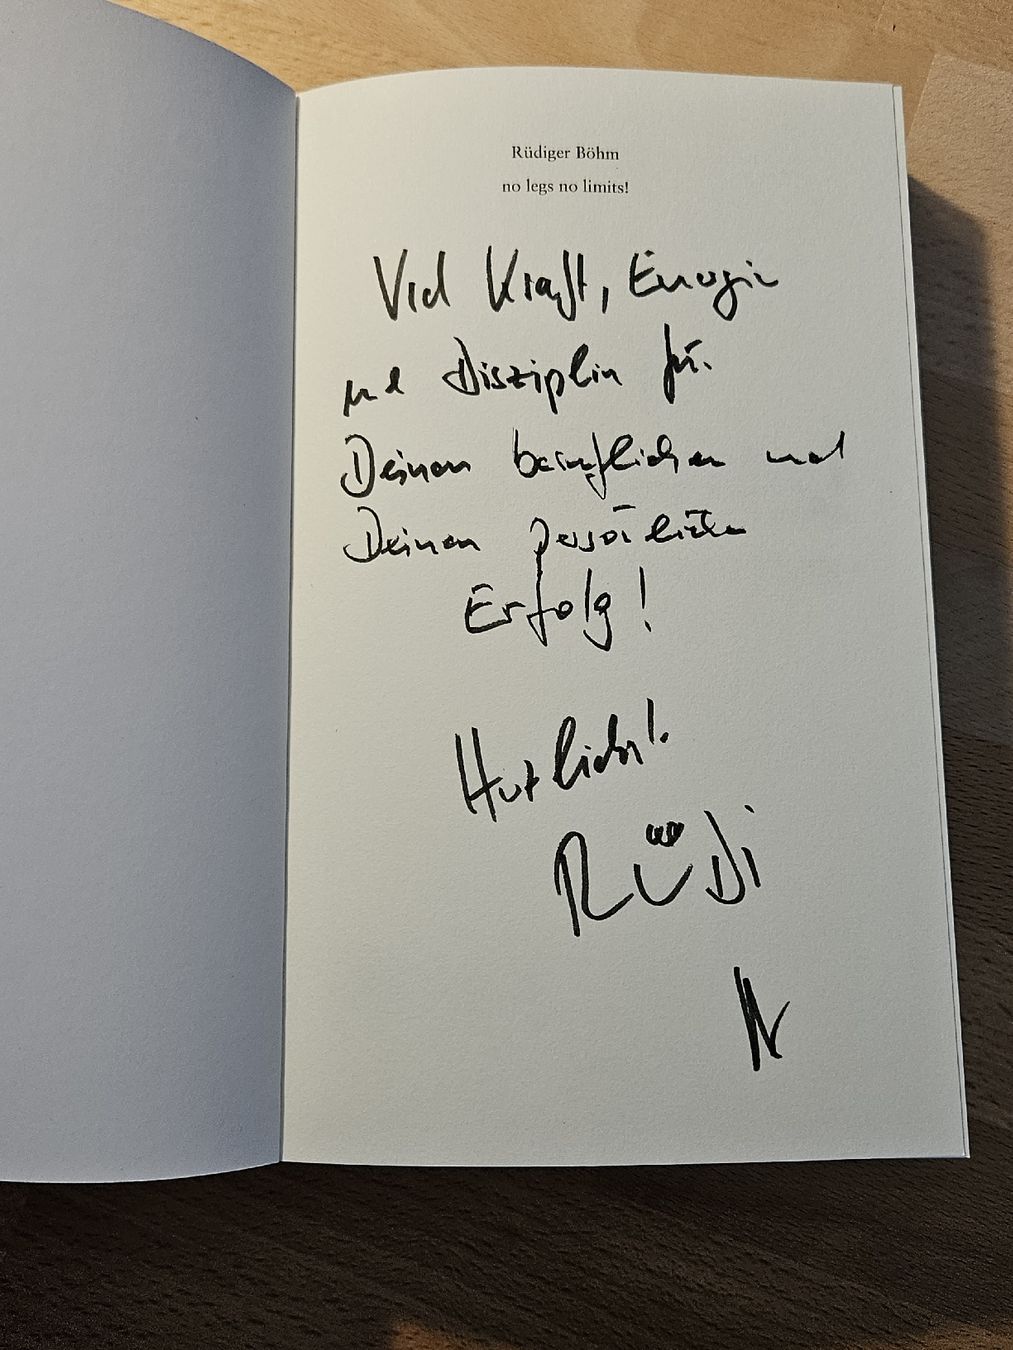 Rüdiger Böhm
no legs no limits!
Viel Kraft, Energie
und Disziplin für
Deinen beruflichen und
Deinen persönlichen
Erfolg!
Herzlichst.
RÜDi